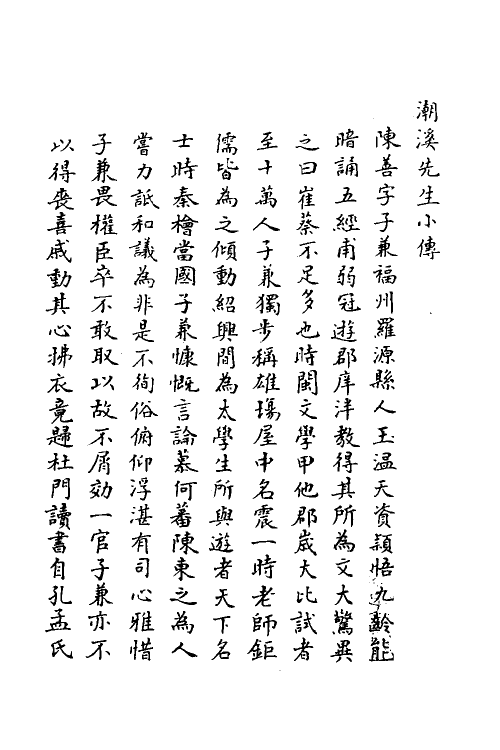 潮溪先生小傳
陳善字子兼福州羅源縣人玉温天資穎悟九齡能
暗誦五經甫弱冠遊郡庠泮教得其所為文大驚異
之曰崔蔡不足多也時閩文學甲他郡歲大比試者
至十萬人子兼獨步稱雄塲屋中名震一時老師鉅
儒皆為之傾動紹興間為太學生所與遊者天下名
士時秦檜當國子兼慷慨言論慕何蕃陳東之為人
嘗力詆和議為非是不徇俗俯仰浮湛有司心雅惜
子兼畏權臣卒不敢取以故不屑効一官子兼亦不
以得喪喜戚動其心拂衣竟歸杜門讀書自孔孟氏